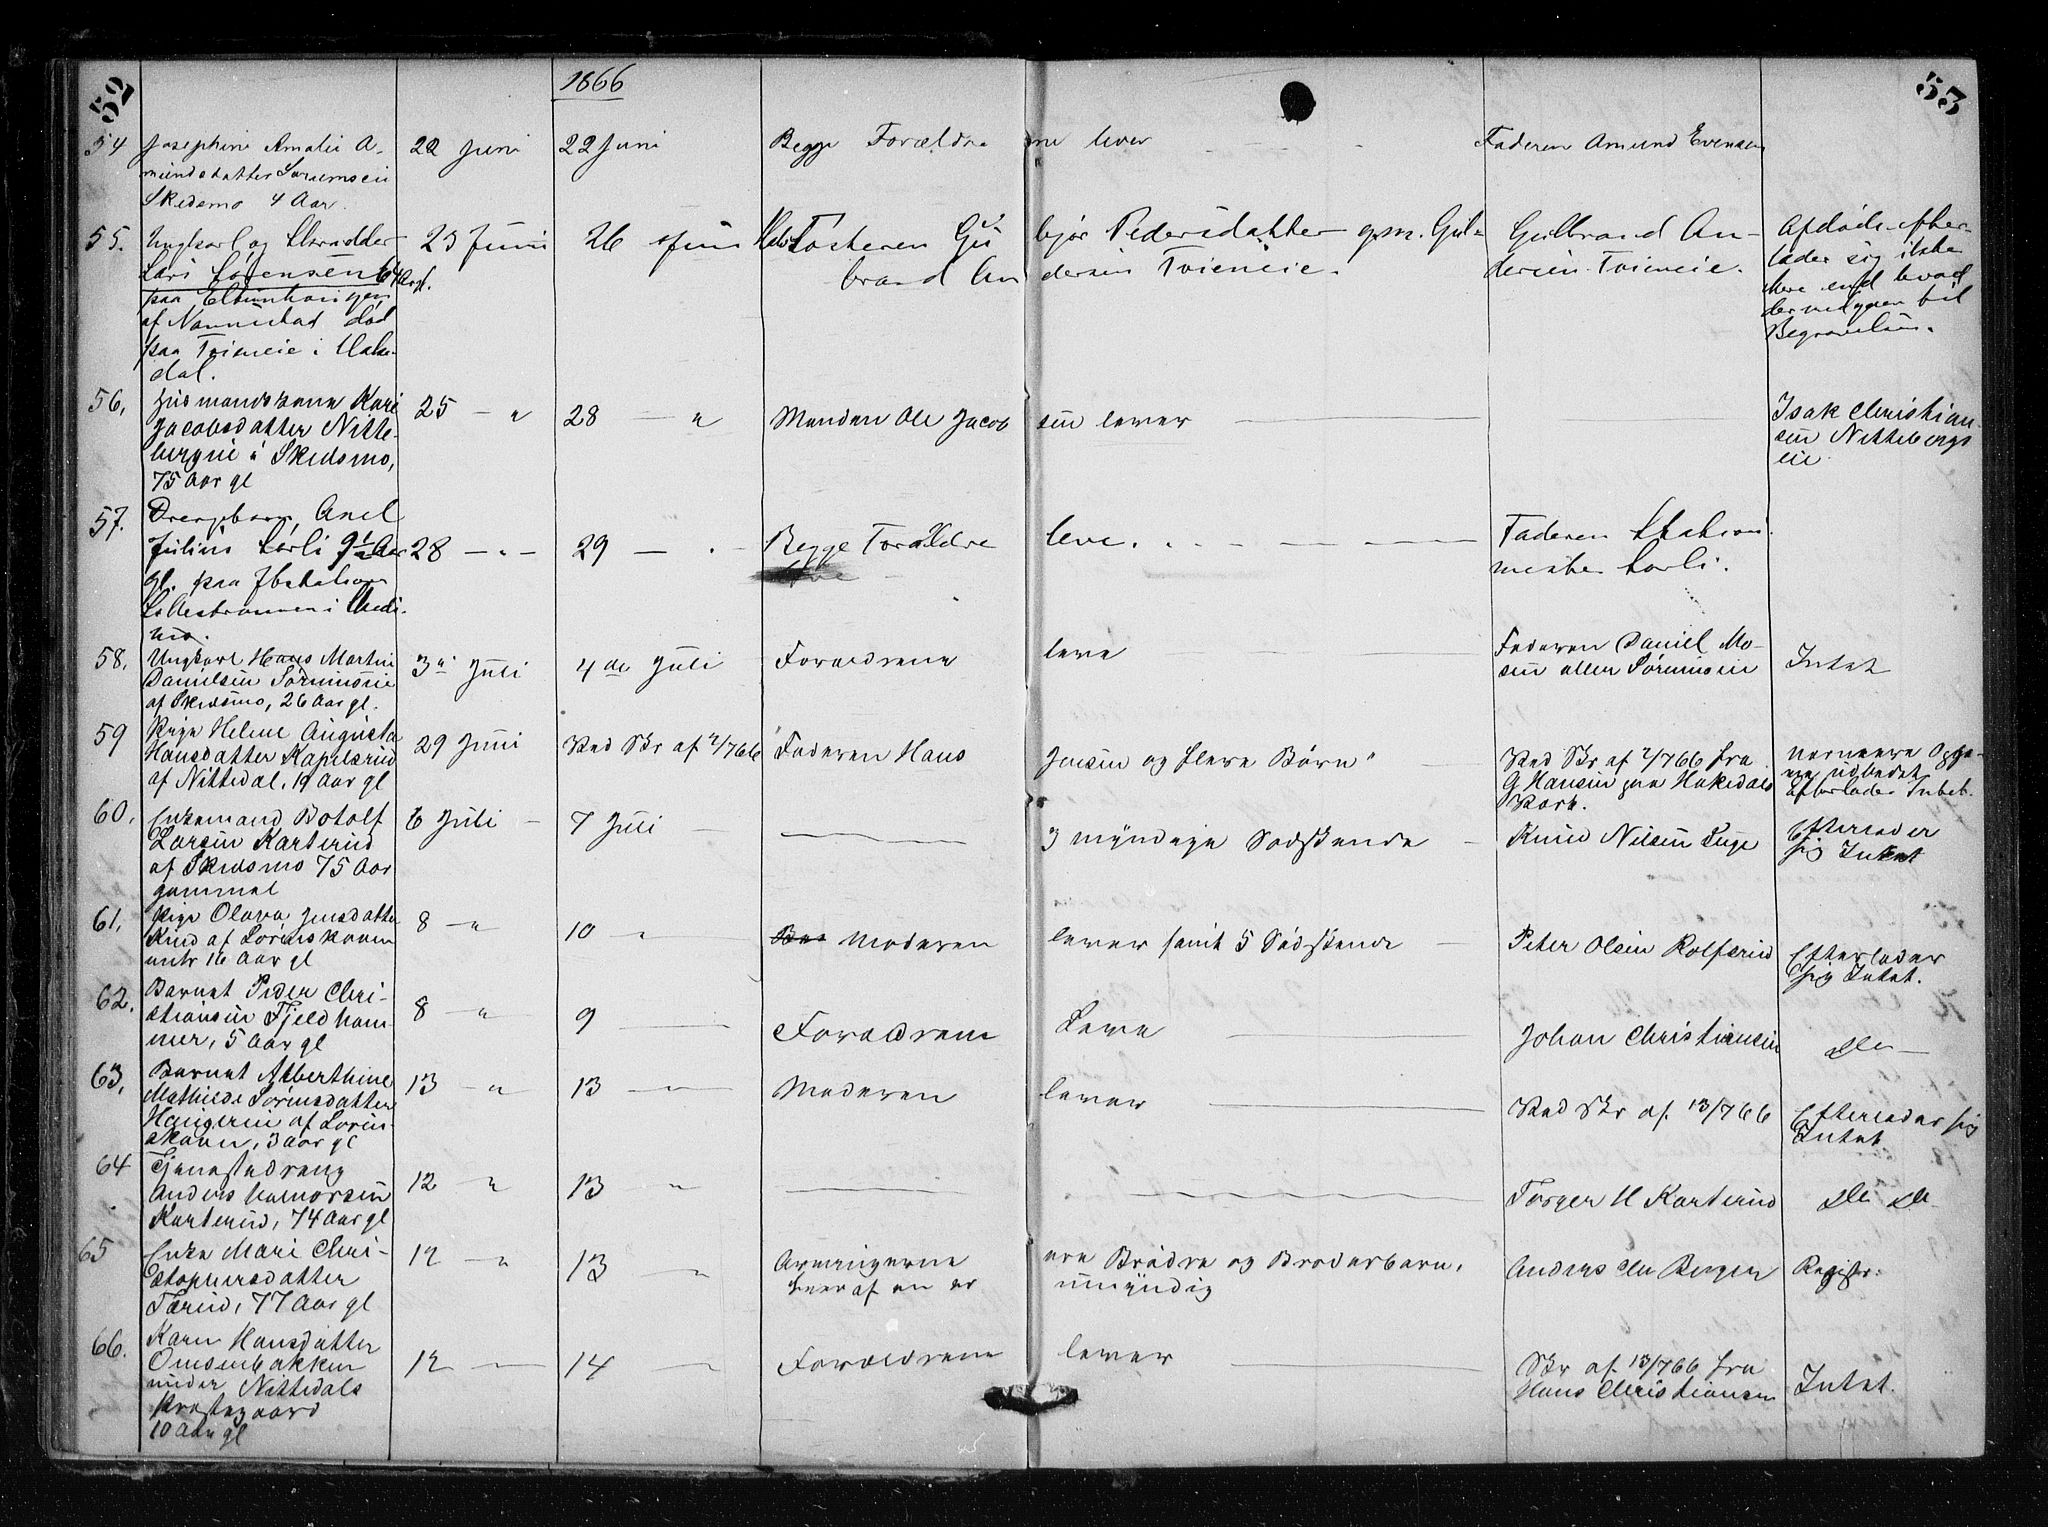 52
1866
53
54
Josephine Amalie A-
mundsdatter Sørumseie
Skedsmo 4 Aar.
22 Juni
22 Juni
Begge Forældre
ne lever
Faderen Amund Evensen
55.
Ungkarl og Skrædder
Lars Sørensen 64 Aar gl.
paa
af Nannestad død
paa Tøieneie i Hake-
dal.
23 Juni
26 Juni
Søsteren Gu
bjør Pedersdatter gm. Gul-
brand An
dersen Tøieneie.
Gulbrand An-
dersen Tøieneie.
Afdøde efter-
lader sig ikke
Mere end hvad
der medgaar til
Begravelsen.
56.
Husmandskone Kari
Jacobsdatter Nitte-
bergeie i Skedsmo,
75 Aar gl
25 — "
28 — "
Manden Ole Jacob
sen lever
Isak Christian-
sen Nittebergs
eie
57.
Drengebarn, Axel
Julius Sørli 9½ Aar
gl. paa Jbstation
Lillestrømmen i Skeds-
mo.
28 — " —
29 — " —
Begge Forældre
leve.
Faderen Stations
mester Sørli.
58.
Ungkarl Hans Martin
Danielsen Sørumseie
af Skedsmo, 26 Aar gl.
3die Juli
4de Juli
Forældrene
leve
Faderen Daniel Mo-
sen aller Sørumseie
Intet
59
Pige Helene Augusta
Hansdatter Kapelsrud
af Nittedal, 19 Aar gl
29 Juni
Ved Skr af 2/7 66
"Faderen Hans
Jensen og flere Børn"
Ved Skr af 2/7 66 fra
G Hansen paa Hakedals
Værk.
nærmere Opgave
udbedet
Efterlader Intet.
60.
Enkemand Botolf
Larsen Karterud
af Skedsmo 75 Aar
gammel
6 Juli
7 Juli
3 myndige Sødskende
Knud Nilsen
Efterlader
sig Intet
61.
Pige Olava Jensdatter
Rud af Lørenskoven
16 Aar gl
8 — "
10 "
Moderen
lever samt 5 Sødskende
Peter Olsen Rolfsrud
Efterlader
sig Intet.
62.
Barnet Peder Chri-
stiansen Fjeldham-
mer, 5 Aar gl
8 — "
9
Forældrene
Leve
Johan Christiansen
Do —
63.
Barnet Albertine
Mathilde Sørensdatter
Haugerin af Løren-
skoven, 3 Aar gl
13 — "
13 — "
Moderen
lever
Ved Skr af 13/7 66
Efterlader sig
Intet
64
Tjenestedreng
Anders Halvorsen
Karterud, 74 Aar gl
12 "
13 "
Torger H Karterud
Do Do
65
Enke Mari Chri-
stophersdatter
Tærud, 77 Aar gl
12 — "
13 — "
Arvingerne
hvoraf en er
ere Brødre og Broderbørn,
umyndig
Anders Berger
Registr.
66.
Karen Hansdatter
Omsenbakken
under Nittedals
Præstegaard
10 Aar gl
12 —
14 —
Forældrene
lever
Skr af 13/7 66 fra
Hans Christiansen
Intet.